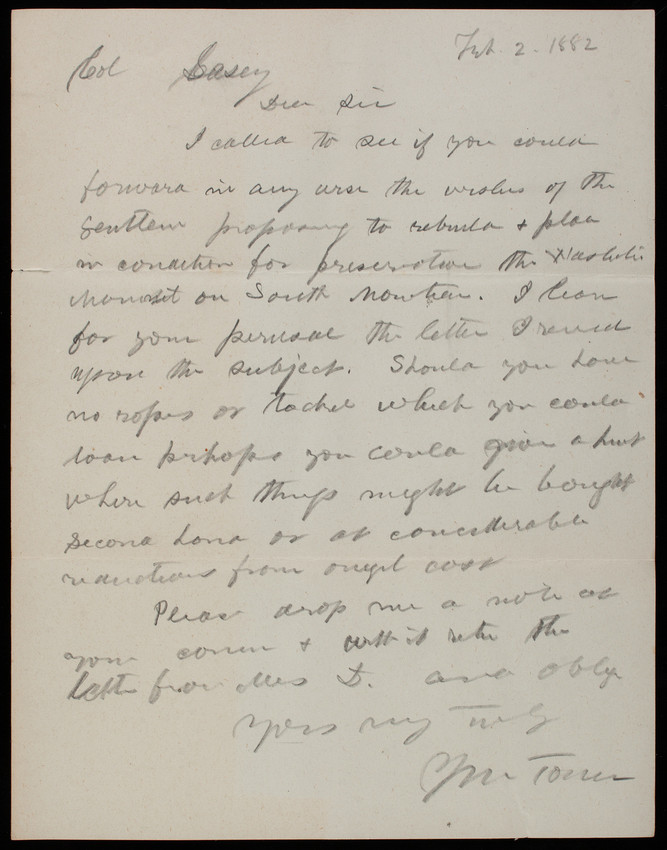 Feb. 2. 1882
Col Casey
Dear Sir
I called to see if you could
forward in any wise the wishes of the
Gentlem proposing to rebuild + place
in condition for preservation the Washntn
Monmnt on South Mountain. I leave
for your perusal the letter I recivd
upon the subject. Should you have
no ropes or tackel which you could
loan perhaps you could give a hint
where such things might be bought
second hand or at considerable
reductions from origl cost
Please drop me a note at
your conven + with it retn the
letter from Mrs D. and oblge
Yours very truly
Toner